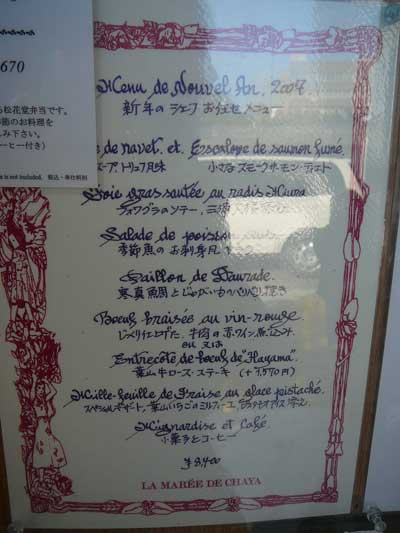 670
松花堂弁当です。
節のお料理を
しみ下さい。
ーヒー付き)
is not included. 税込・奉仕料別
Menu de Nouvel An. 2007.
新年のシェフお任せメニュー
de navet. et. Escalope de saumon fumé.
スープ トリュフ風味 小さなスモークサーモン
Foie gras sautée au radis Miura
フォワグラのソテー、三浦大根
Salade de poisson
季節魚のお刺身風
de Daurade.
寒真鯛とじゃがいものパリパリ焼き
Bœuf braisés au vin-rouge
じっくり仕上げた、牛肉の赤ワイン煮込み
ou 又は
Entrecôte de bœuf de "Hayama"
葉山牛ロース・ステーキ (+
Mille-feuille de Fraise au glace pistache.
スペシャルデザート、葉山いちごのミルフィーユ、ピスタチオアイス添え
Mignardise et Café.
小菓子とコーヒー
¥8,400
LA MARÉE DE CHAYA